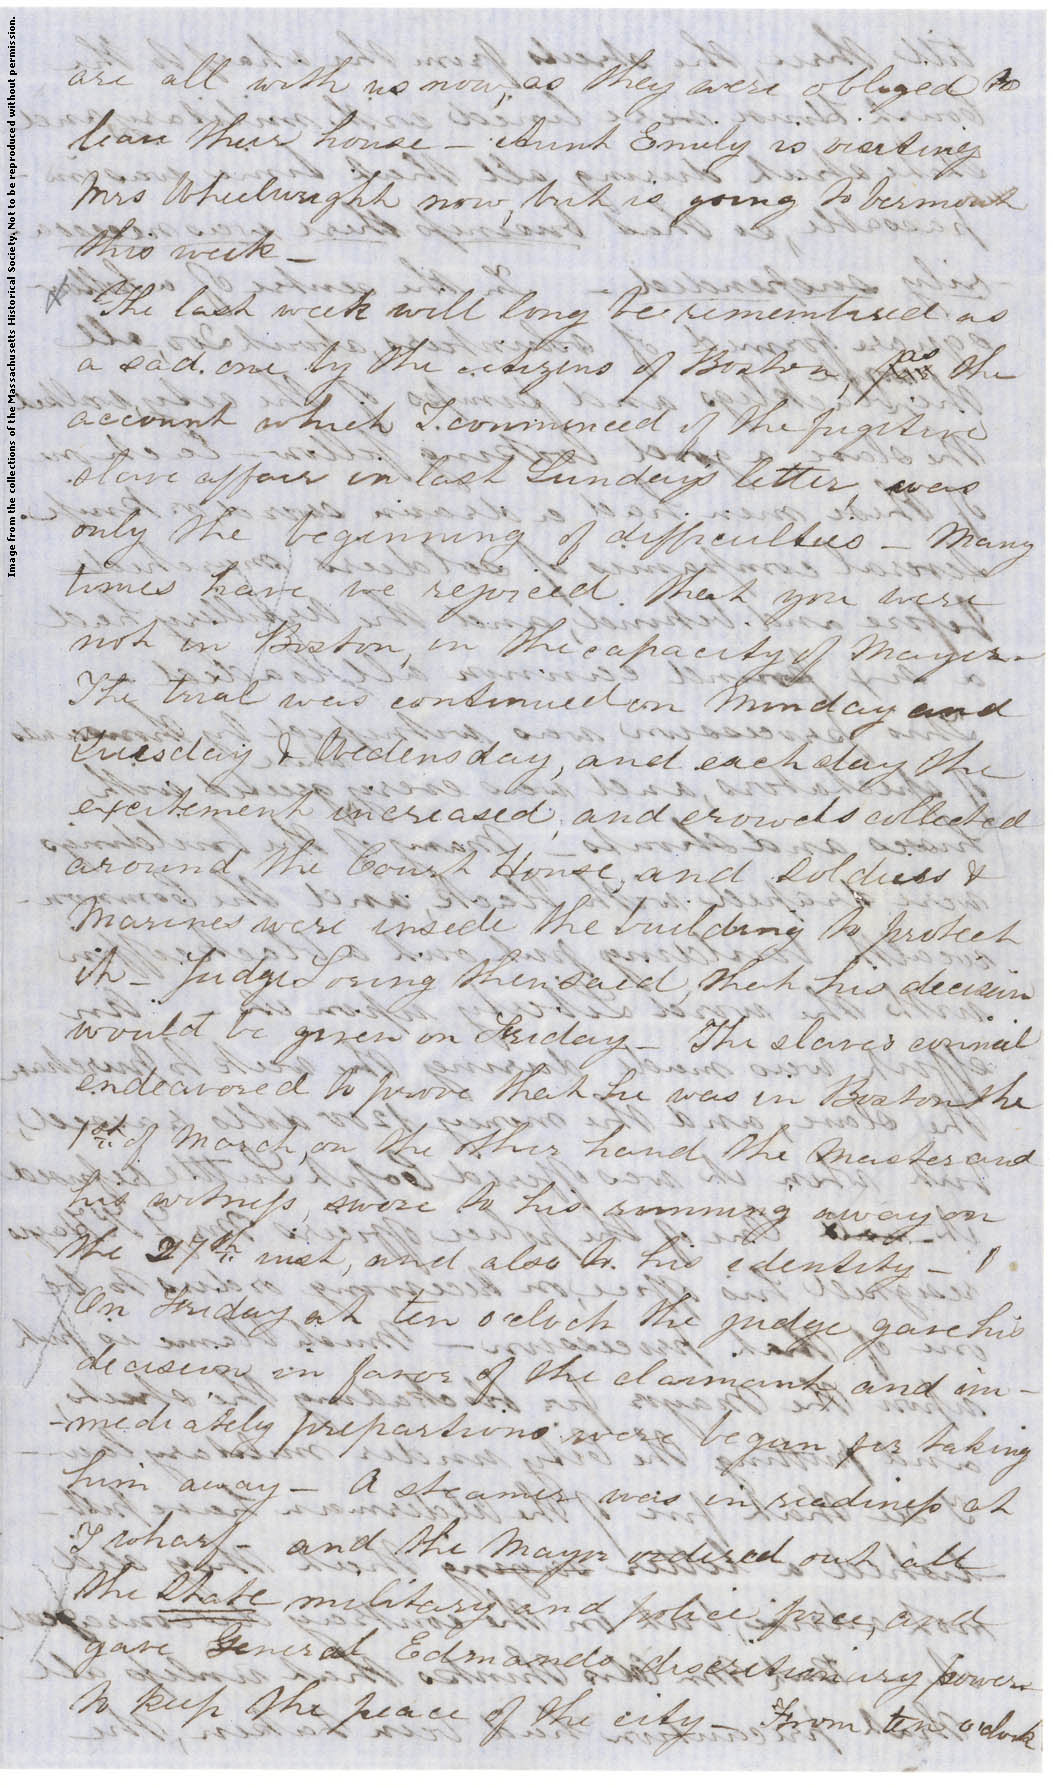 are all with us now, as they were obliged to
leave their house – Aunt Emily is visiting
Mrs Wheelwright now, but is going to Vermont
this week –
The last week will long be remembered as
a sad one, by the citizens of Boston, the
account which I commenced of the fugitive
slave affair in last Sunday's letter, was
only the beginning of difficulties – Many
times have we rejoiced that you were
not in Boston, in the capacity of Mayor –
The trial was continued on Monday and
Tuesday & Wedensday, and each day the
excitement increased, and crowds collected
around the Court House, and soldiers &
Marines were inside the building to protect
it – Judge Loring then said, that his decision
would be given on Friday – The slaves council
endeavored to prove that he was in Boston the
1st of March, on the other hand the Master and
his witness, swore to his running away on
the 27th inst, and also to his identity –
On Friday at ten oclock the judge gave his
decision in favor of the claimant, and im-
-mediately prepartions were begun for taking
him away – A steamer was in readiness at
T wharf – and the Mayor ordered out all
the State military and police force, and
gave General Edmands discretionary powers
to keep the peace of the city – From ten o'clock
Image from the collections of the Massachusetts Historical Society. Not to be reproduced without permission.